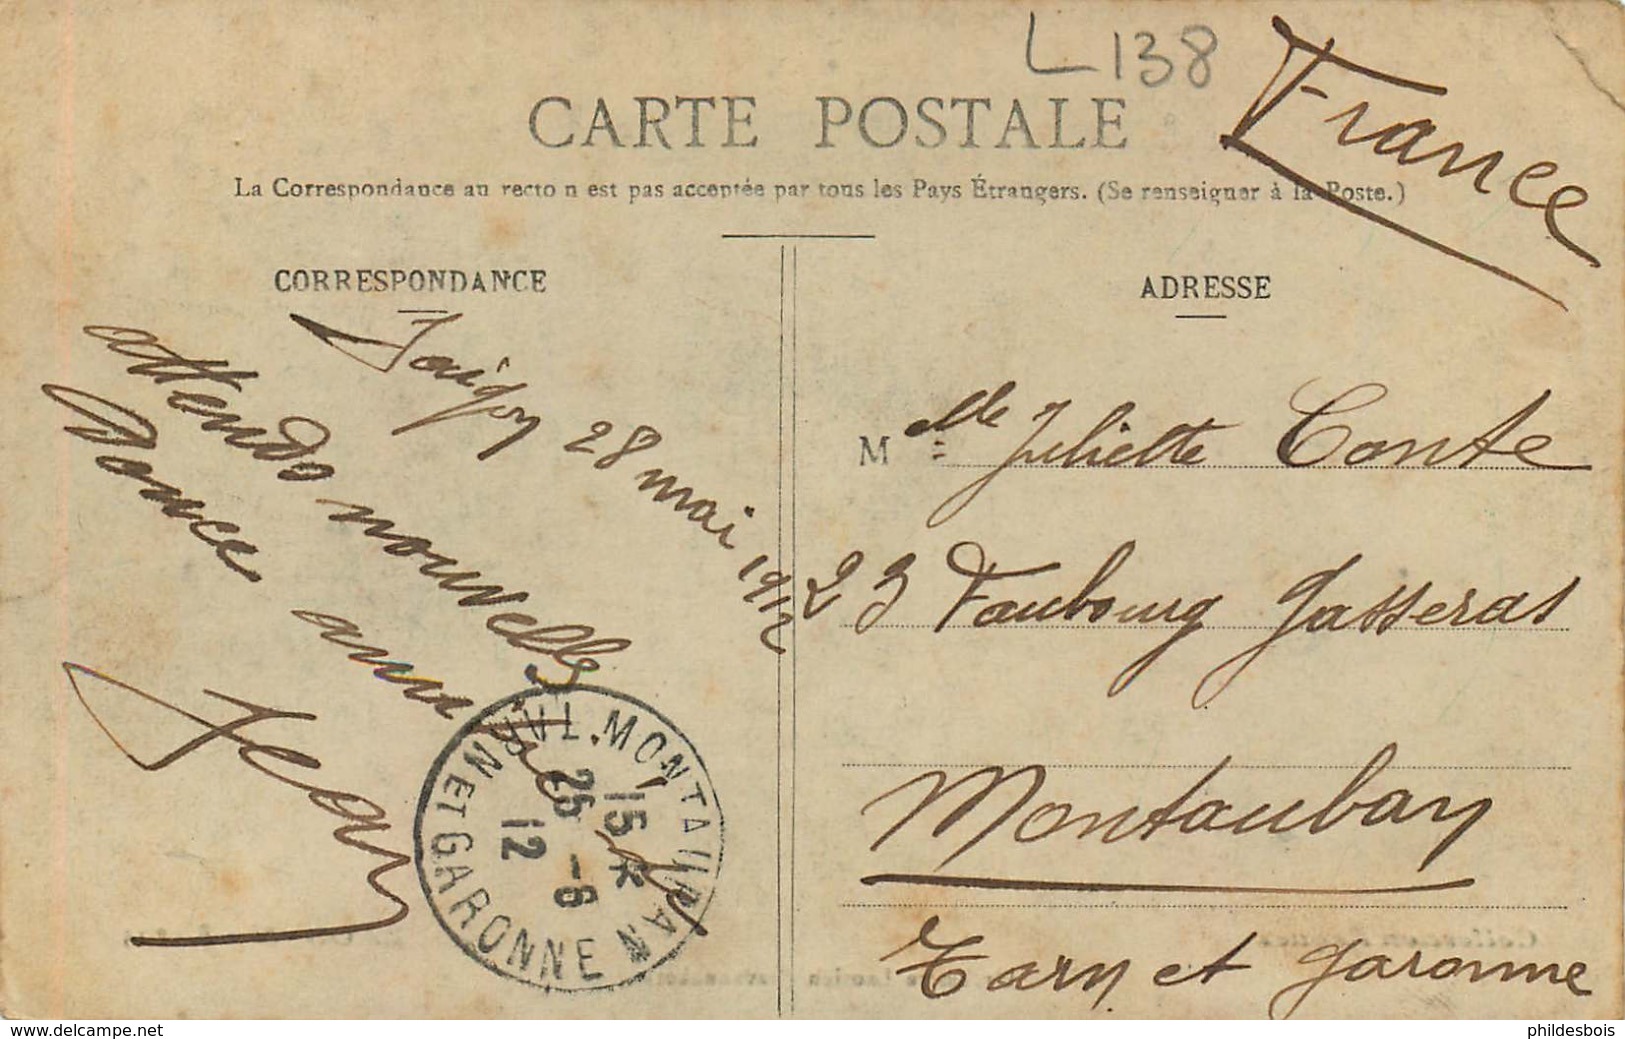 L138
France
CARTE POSTALE
La Correspondance au recto n est pas acceptée par tous les Pays Étrangers. (Se renseigner à la Poste.)
CORRESPONDANCE
Saïgon 28 mai 1912
attends nouvelles
Bonne amitié
Jean
ADRESSE
Melle Juliette Conte
23 Faubourg Gasseras
Montauban
Tarn et Garonne
MONTAUBAN
15 *
25 - 6
12
TARN ET GARONNE
www.delcampe.net
phildesbois